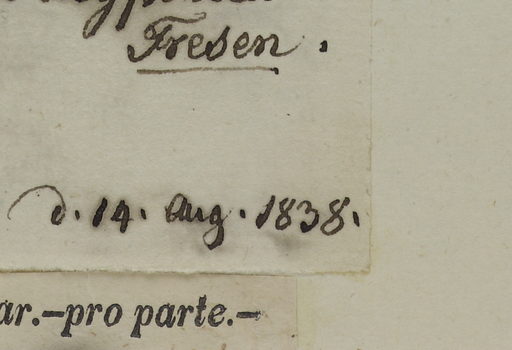 Fresen.
d. 14. Aug. 1838.
ar.–pro parte.–